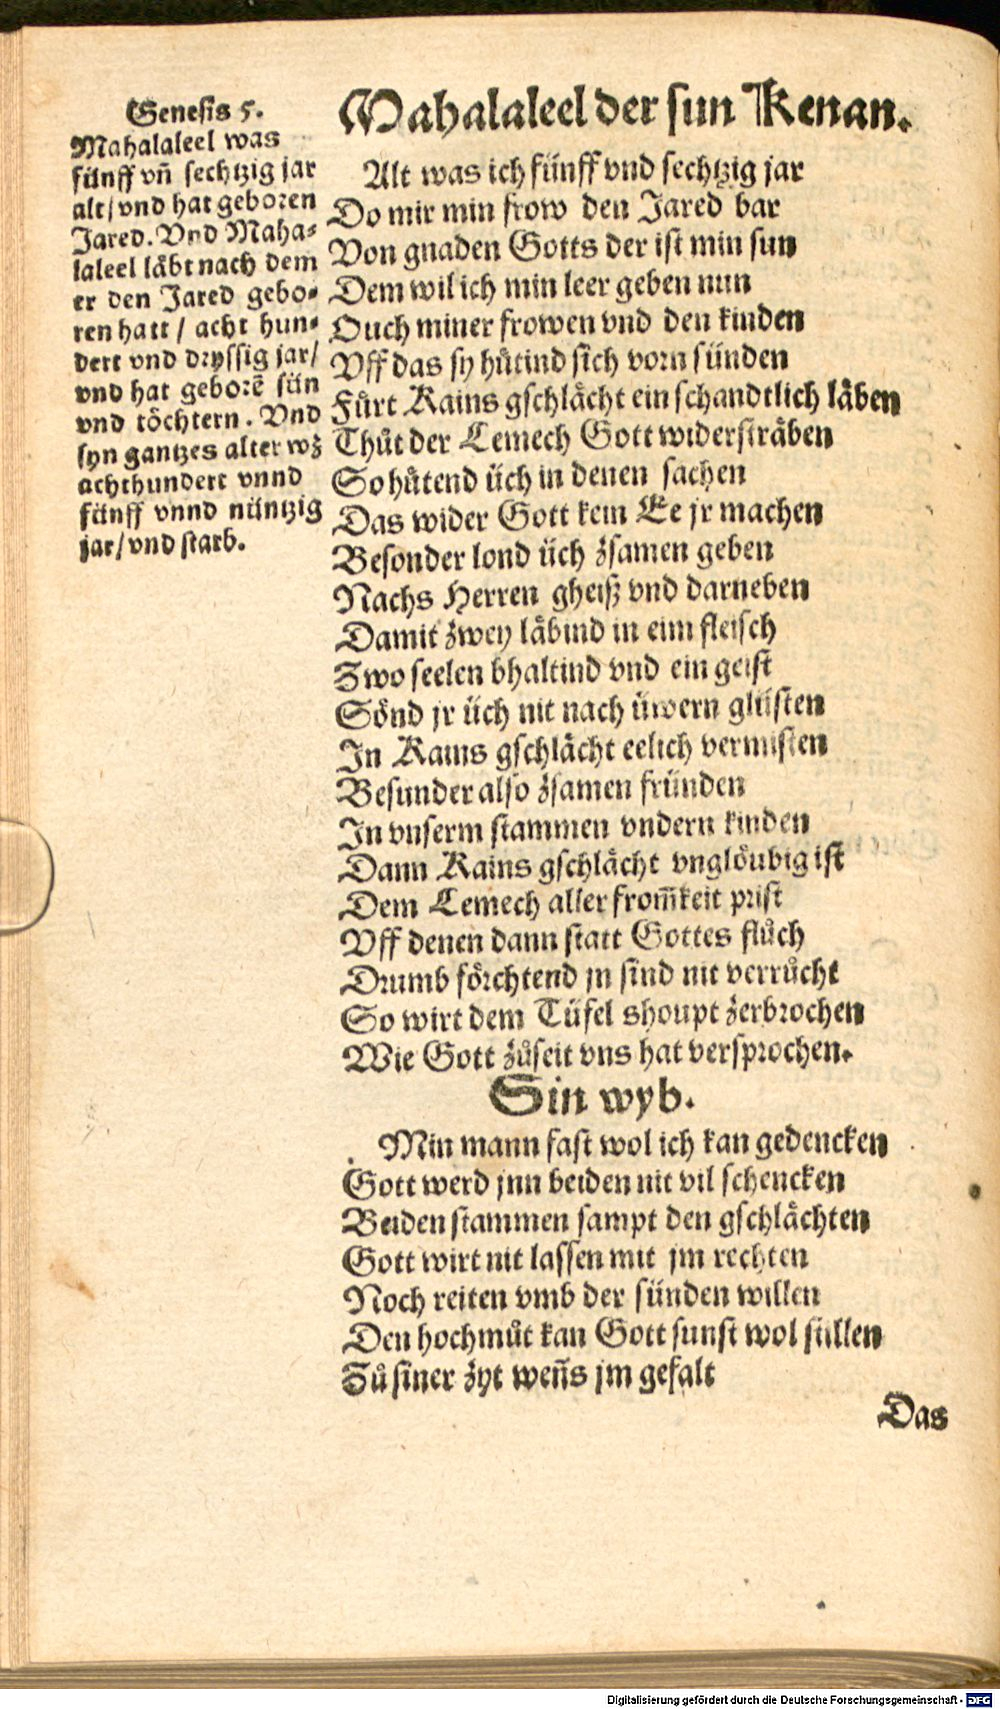 Genesis 5.
Mahalaleel was
fünff vñ sechtzig jar
alt/vnd hat geboren
Jared. Vnd Maha-
laleel läbt nach dem
er den Jared gebo-
ren hatt / acht hun-
dert vnd dryssig jar/
vnd hat geborē sün
vnd töchtern. Vnd
syn gantzes alter wz
achthundert vnnd
fünff vnnd nüntzig
jar/vnd starb.
Mahalaleel der sun Kenan.
Alt was ich fünff vnd sechtzig jar
Do mir min frow den Jared bar
Von gnaden Gotts der ist min sun
Dem wil ich min leer geben nun
Ouch miner frowen vnd den kinden
Vff das sy hůtind sich vorn sünden
Fürt Kains gschlächt ein schandtlich läben
Thůt der Lemech Gott widersträben
So hůtend üch in denen sachen
Das wider Gott kein Ee jr machen
Besonder lond üch zsamen geben
Nachs Herren gheiß vnd darneben
Damit zwey läbind in eim fleisch
Zwo seelen bhaltind vnd ein geist
Sönd jr üch nit nach üwern glüsten
In Kains gschlächt eelich vermisten
Besunder also zsamen fründen
In vnserm stammen vndern kinden
Dann Kains gschlächt vnglöubig ist
Dem Lemech aller from̃keit prist
Vff denen dann statt Gottes flůch
Drumb förchtend jn sind nit verrůcht
So wirt dem Tüfel shoupt zerbrochen
Wie Gott zůseit vns hat versprochen.
Sin wyb.
Min mann fast wol ich kan gedencken
Gott werd jnn beiden nit vil schencken
Beiden stammen sampt den gschlächten
Gott wirt nit lassen mit jm rechten
Noch reiten vmb der sünden willen
Den hochmůt kan Gott sunst wol stillen
Zů siner zyt weñs jm gefalt
Das
Digitalisierung gefördert durch die Deutsche Forschungsgemeinschaft - DFG